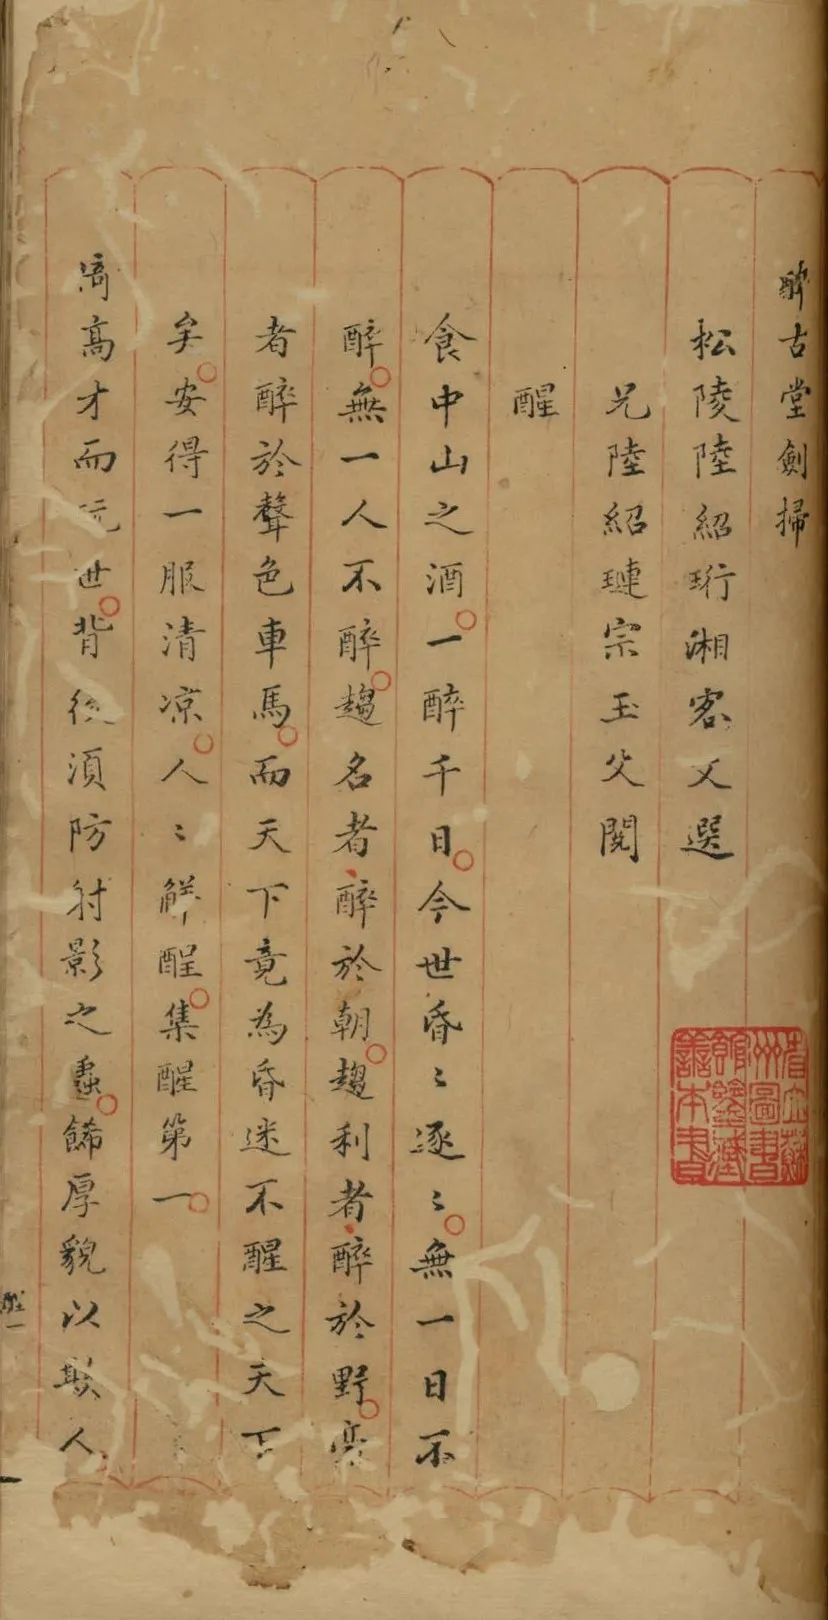 醉古堂劍掃
松陵陸紹珩湘客父選
兄陸紹璉宗玉父閱
醒
食中山之酒一醉千日今世昏〻逐〻無一日不
醉無一人不醉趨名者醉於朝趨利者醉於野豪
者醉於聲色車馬而天下竟為昏迷不醒之天下
矣安得一服清凉人〻解酲集醒第一
倚高才而玩世背後須防射影之蟲餙厚貌以欺人
醒一